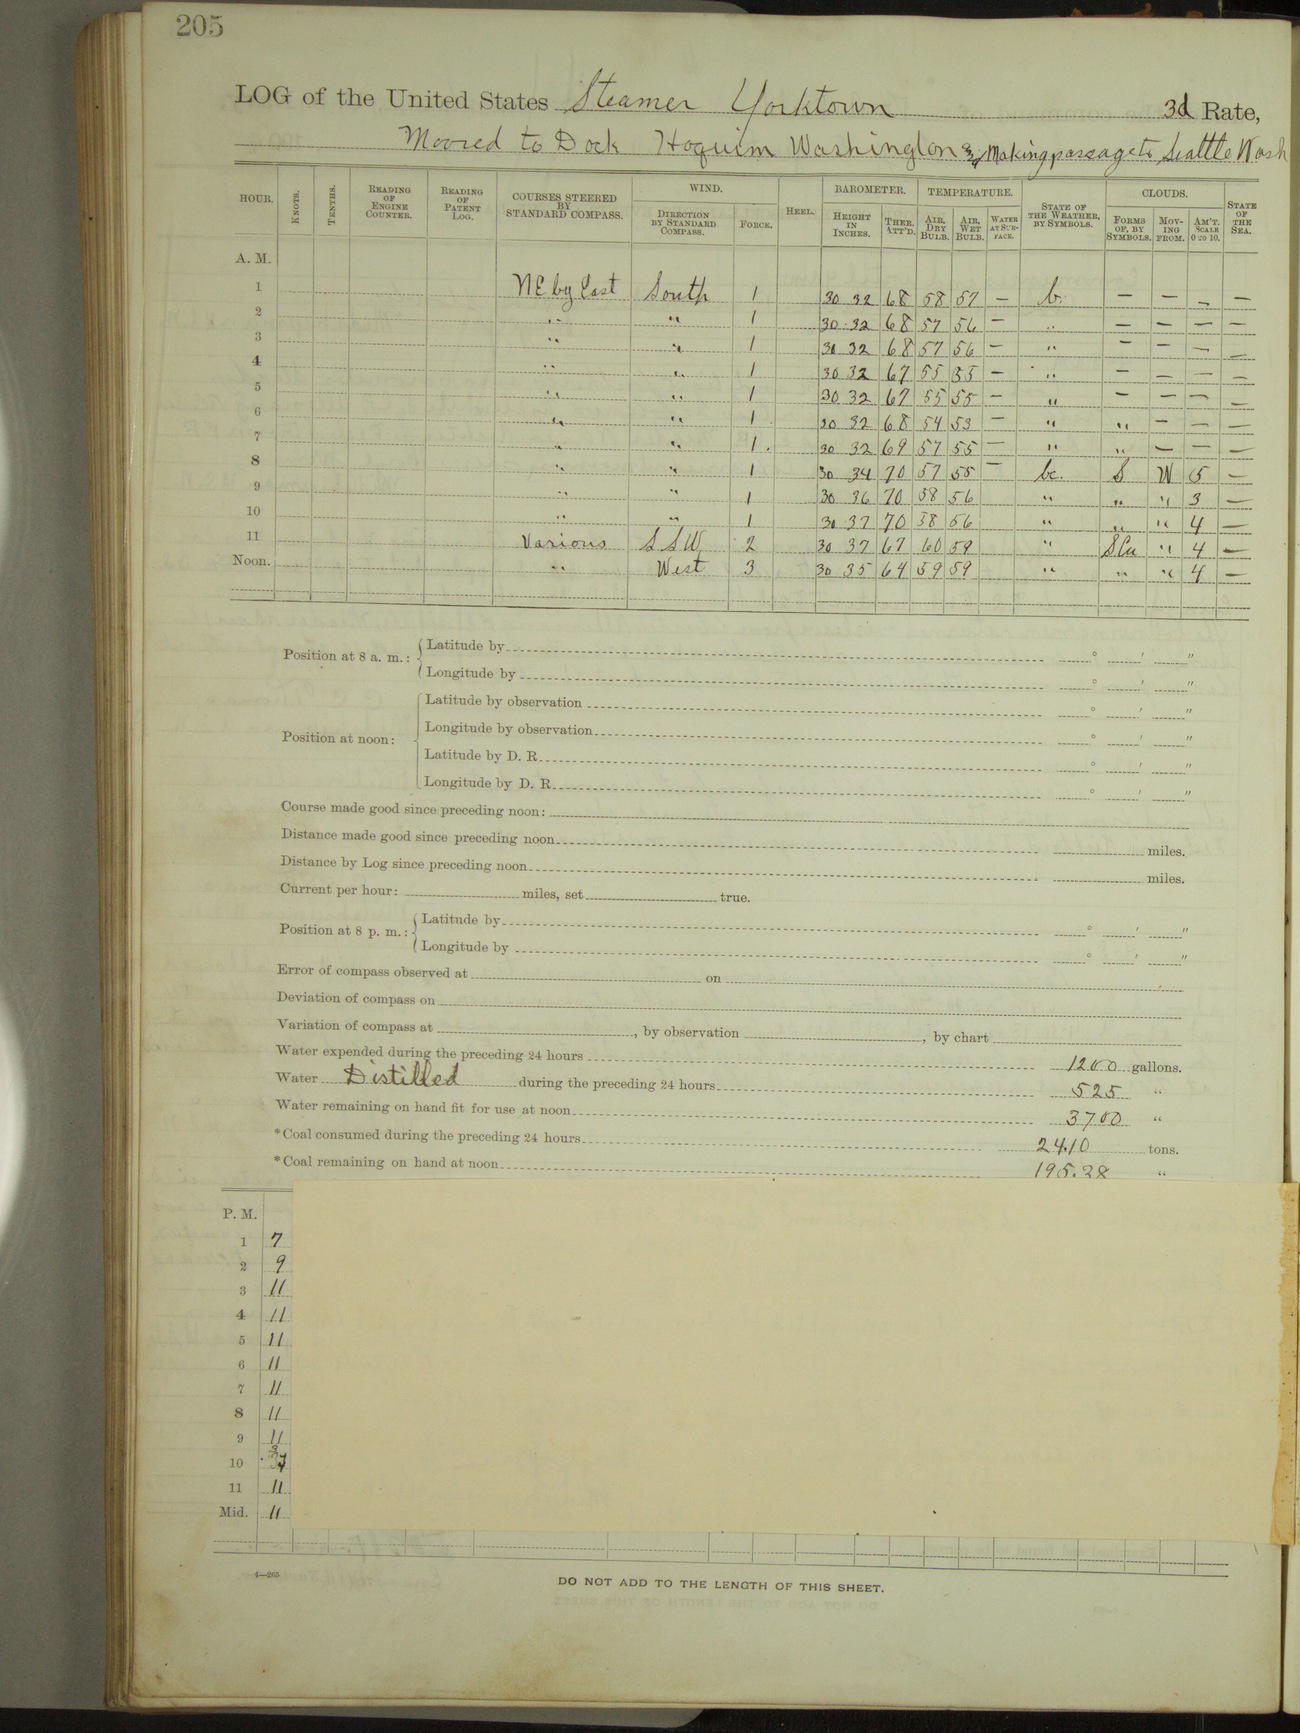 205
LOG of the United States Steamer Yorktown 3d Rate,
Moored to Dock Hoquim Washington & Making passage to Seattle Wash
HOUR. KNOTS. TENTHS. READING OF ENGINE COUNTER. READING OF PATENT LOG. COURSES STEERED BY STANDARD COMPASS. WIND. DIRECTION BY STANDARD COMPASS. FORCE. HEEL. BAROMETER. HEIGHT IN INCHES. THER. ATT'D. TEMPERATURE. AIR, DRY BULB. AIR, WET BULB. WATER AT SUR-FACE. STATE OF THE WEATHER, BY SYMBOLS. CLOUDS. FORMS OF, BY SYMBOLS. MOV-ING FROM. AM'T. SCALE 0 TO 10. STATE OF THE SEA.
A. M.
1 NE by East South 1 30 32 68 58 57 — b. — — — —
2 " " 1 30.32 68 57 56 — " — — — —
3 " " 1 30 32 68 57 56 — " — — — —
4 " " 1 30 32 67 55 55 — " — — — —
5 " " 1 30 32 67 55 55 — " — — — —
6 " " 1 30 32 68 54 53 — " " — — —
7 " " 1. 30 32 69 57 55 — " " — — —
8 " " 1 30 34 70 57 55 — bc. S W 5 —
9 " " 1 30 36 70 58 56 " " " 3 —
10 " " 1 30 37 70 58 56 " " " 4 —
11 Various SSW 2 30 37 67 60 59 " SCu " 4 —
Noon. " West 3 30 35 64 59 59 " " " 4 —
Position at 8 a. m.: Latitude by ° ' "
Longitude by ° ' "
Position at noon: Latitude by observation ° ' "
Longitude by observation ° ' "
Latitude by D. R. ° ' "
Longitude by D. R. ° ' "
Course made good since preceding noon:
Distance made good since preceding noon miles.
Distance by Log since preceding noon miles.
Current per hour: miles, set true.
Position at 8 p. m.: Latitude by ° ' "
Longitude by ° ' "
Error of compass observed at on
Deviation of compass on
Variation of compass at , by observation , by chart
Water expended during the preceding 24 hours 1200 gallons.
Water Distilled during the preceding 24 hours 525 "
Water remaining on hand fit for use at noon 3700 "
*Coal consumed during the preceding 24 hours 24.10 tons.
*Coal remaining on hand at noon 195.38 "
P. M.
1 7
2 9
3 11
4 11
5 11
6 11
7 11
8 11
9 11
10
11 11
Mid. 11
4—265
DO NOT ADD TO THE LENGTH OF THIS SHEET.